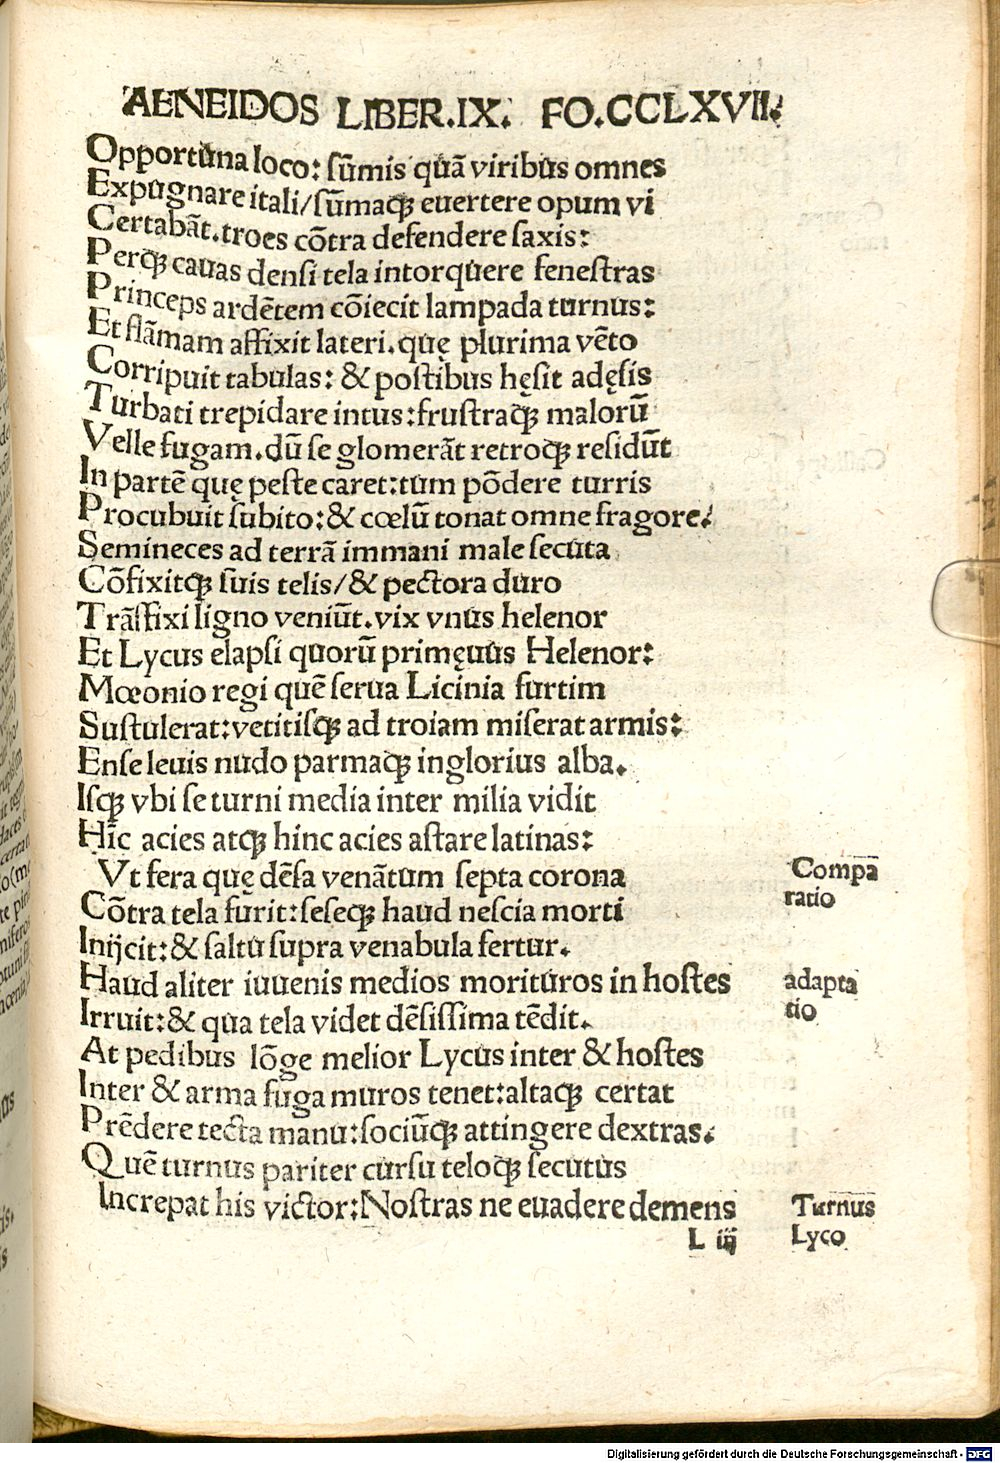 AENEIDOS LIBER.IX. FO.CCLXVII.
Opportuna loco: sūmis quā viribus omnes
Expugnare itali/sūmaqꝫ euertere opum vi
Certabāt.troes cōtra defendere saxis:
Perqꝫ cauas densi tela intorquere fenestras
Princeps ardētem cōiecit lampada turnus:
Et flāmam affixit lateri.quę plurima vēto
Corripuit tabulas: & postibus hęsit adęsis
Turbati trepidare intus:frustraqꝫ malorū
Velle fugam.dū se glomerāt retroqꝫ residūt
In partē quę peste caret:tum pōdere turris
Procubuit subito:& cœlū tonat omne fragore.
Semineces ad terrā immani male secuta
Cōfixitqꝫ suis telis/& pectora duro
Trāsfixi ligno veniūt.vix vnus helenor
Et Lycus elapsi quorū primęuus Helenor:
Mœonio regi quē serua Licinia furtim
Sustulerat:vetitisqꝫ ad troiam miserat armis:
Ense leuis nudo parmaqꝫ inglorius alba.
Isqꝫ vbi se turni media inter milia vidit
Hīc acies atqꝫ hinc acies astare latinas:
Vt fera quę dēsa venātum septa corona
Compā
ratio
Cōtra tela furit:seseqꝫ haud nescia morti
Inijcit:& saltu supra venabula fertur.
Haud aliter iuuenis medios morituros in hostes
adapta
tio
Irruit:& qua tela videt dēsissima tēdit.
At pedibus lōge melior Lycus inter & hostes
Inter & arma fuga muros tenet:altaqꝫ certat
Prēdere tecta manu:sociūqꝫ attingere dextras.
Quē turnus pariter cursu teloqꝫ secutus
Increpat his victor:Nostras ne euadere demens
Turnus
Lyco
L iij
Digitalisierung gefördert durch die Deutsche Forschungsgemeinschaft - DFG